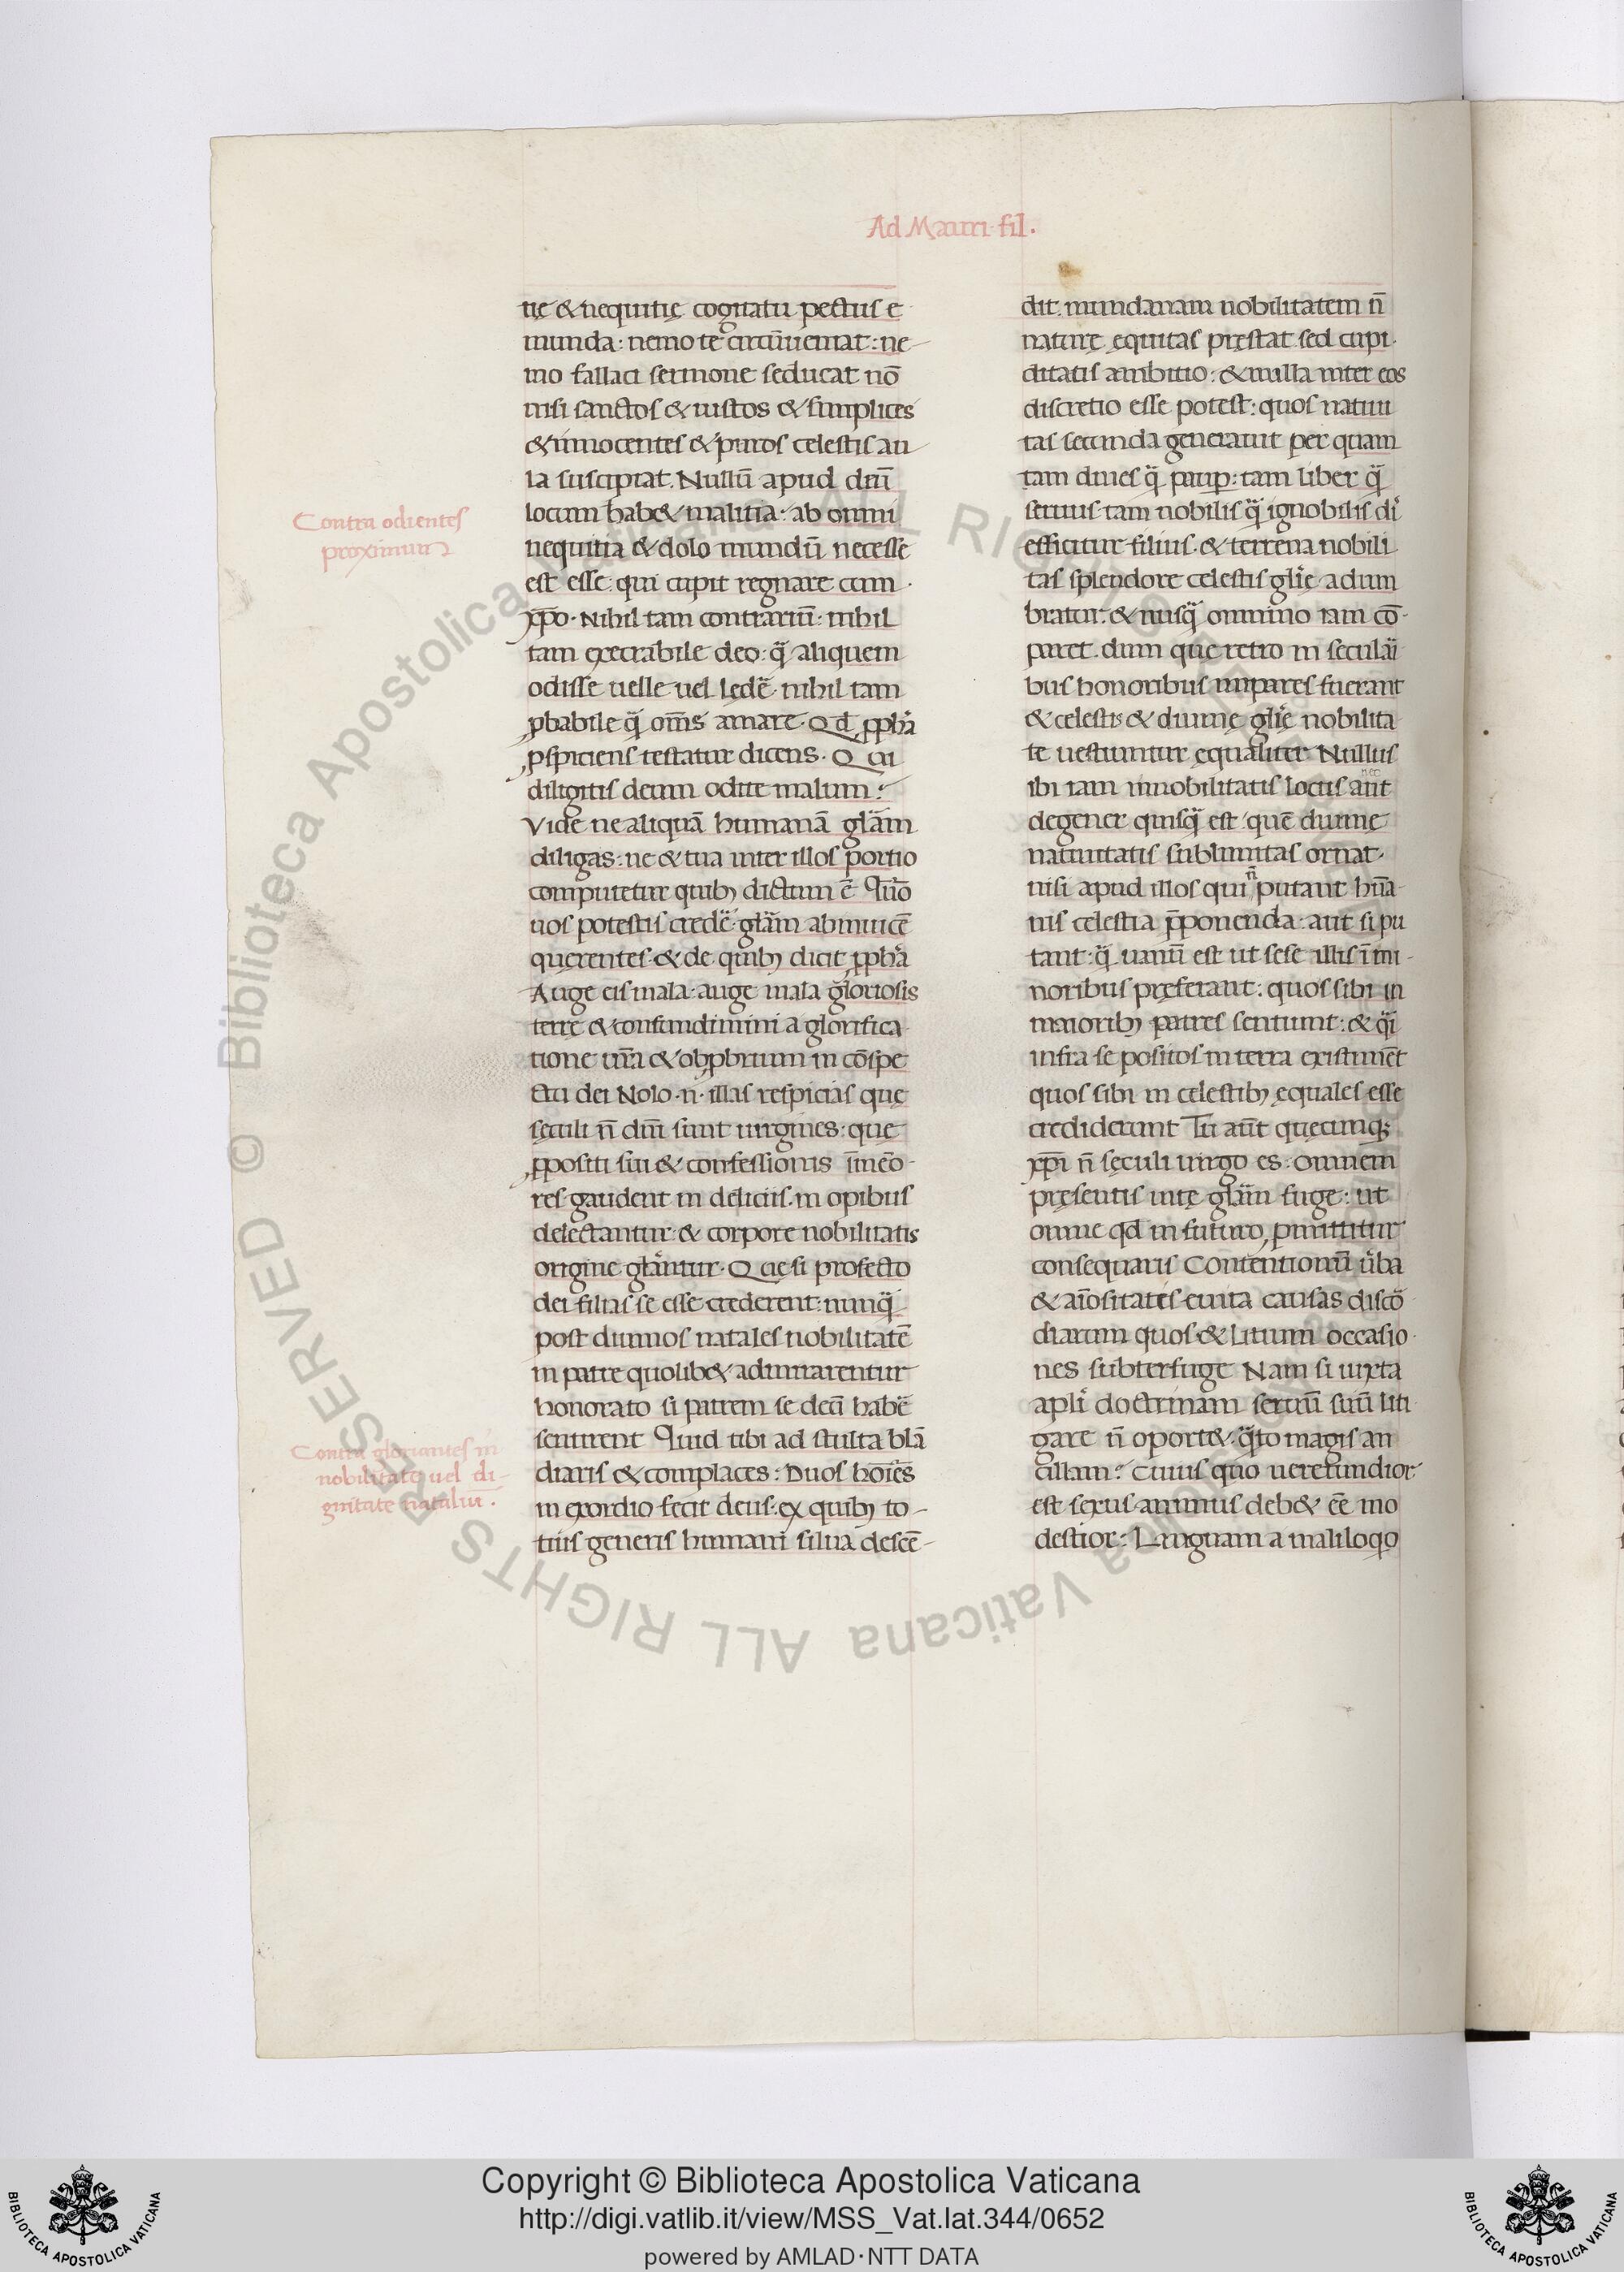 Ad Mauri· fil.
tię & nequitię cognatu pectus e
munda: nemo te circūueniat: ne-
mo fallaci sermone seducat nō
nisi sanctos & iustos & simplices
& innocentes & puros celestis au
la suscipiat. Nullū apud dm̄
locum hab& malitia: ab omni
nequitia & dolo mundū necesse
est esse qui cupit regnare cum
xp̄o· Nihil tam contrariū: nihil
tam execrabile deo: q̄ aliquem
odisse uelle uel lędē· nihil tam
ꝓbabile q̄ om̄s amare· Qd ꝓph̄a
ꝓspiciens testatur dicens· Qui
diligitis deum odite malum:
Vide ne aliquā humanā glām
diligas: ne & tua inter illos portio
computetur quibꝫ dictum ē Quō
uos potestis credē glām abinuicē
querentes· & de quibꝫ dicit ꝓph̄a
Auge eis mala· auge mala gloriosis
terrę & confundimini a glorifica
tione ur̄a & obꝓbrium in cōspe
ctu dei Nolo ·n· illas respicias quę
sęculi n̄ dn̄i sunt uirgines: quę
ꝓpositi sui & confessionis īmēo-
res gaudent in deliciis· in opibus
delectantur: & corpore nobilitatis
origine glāntur· Quę si profecto
dei filias se esse crederent: nunq̄
post diuinos natales nobilitatē
in patre quolib& admirarentur
honorato si patrem se deū habē
sentirent Quid tibi ad stulta blā
diaris & complaces: Duos hoīes
in exordio fecit deus· ex quibꝫ to-
tius generis humani silua descē-
Contra odientes
proximum
Contra gloriantes in
nobilitate uel di-
gnitate nataliū.
dit· mundanam nobilitatem n̄
naturę equitas pręstat sed cupi-
ditatis ambitio: & nulla inter eos
discretio esse potest: quos natiui
tas secunda generauit per quam
tam diues q̄ pauꝑ: tam liber q̄
seruus tam nobilis q̄ ignobilis dī
efficitur filius· & terrena nobili
tas splendore celestis glīe adum
bratur: & nusq̄ omnino iam cō-
paret· dum que retro in seculāi
bus honoribus impares fuerant
& celestis & diuinę glīe nobilita
te uestiuntur equaliter Nullus
ibi iam innobilitatis locus aut
nec
degener quisq̄ est quē diuinę
natiuitatis sublimitas ornat·
nisi apud illos qui n̄ putant hūa-
nis celestia p̄ponenda: aut si pu
tant: q̄ uanū est ut sese illis ī mi-
noribus pręferant: quos sibi in
maioribꝫ patres sentiunt: & q̄i
infra se positos in terra existimēt
quos sibi in celestibꝫ equales esse
crediderunt Tu aūt quęcunqꝫ
xp̄i n̄ sęculi uirgo es· omnem
pręsentis uitę glām fuge: ut
omne qd in futuro ꝓmittitur
consequaris Contentionū ūba
& aīositates euita causas discō
diarum quos & litium occasio-
nes subterfuge Nam si iuxta
apl̄i doctrinam seruū suū liti
gare n̄ oport& q̄to magis an
cillam? Cuius quo uerecundior
est sexus animus deb& ēe mo
destior: Linguam a maliloqo
Copyright © Biblioteca Apostolica Vaticana
http://digi.vatlib.it/view/MSS_Vat.lat.344/0652
powered by AMLAD·NTT DATA
BIBLIOTECA APOSTOLICA VATICANA
BIBLIOTECA APOSTOLICA VATICANA
© Biblioteca Apostolica Vaticana ALL RIGHTS RESERVED
© Biblioteca Apostolica Vaticana ALL RIGHTS RESERVED